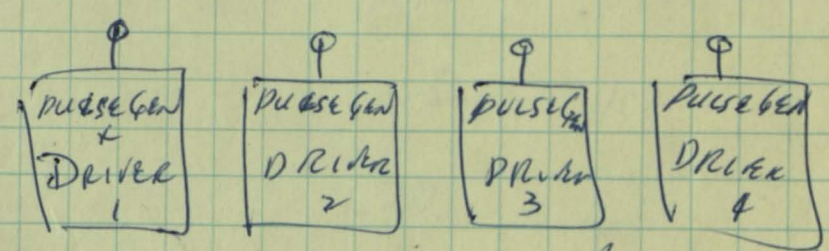 PULSE GEN
+
DRIVER
1
PULSE GEN
DRIVER
2
PULSE GEN
DRIVER
3
PULSE GEN
DRIVER
4